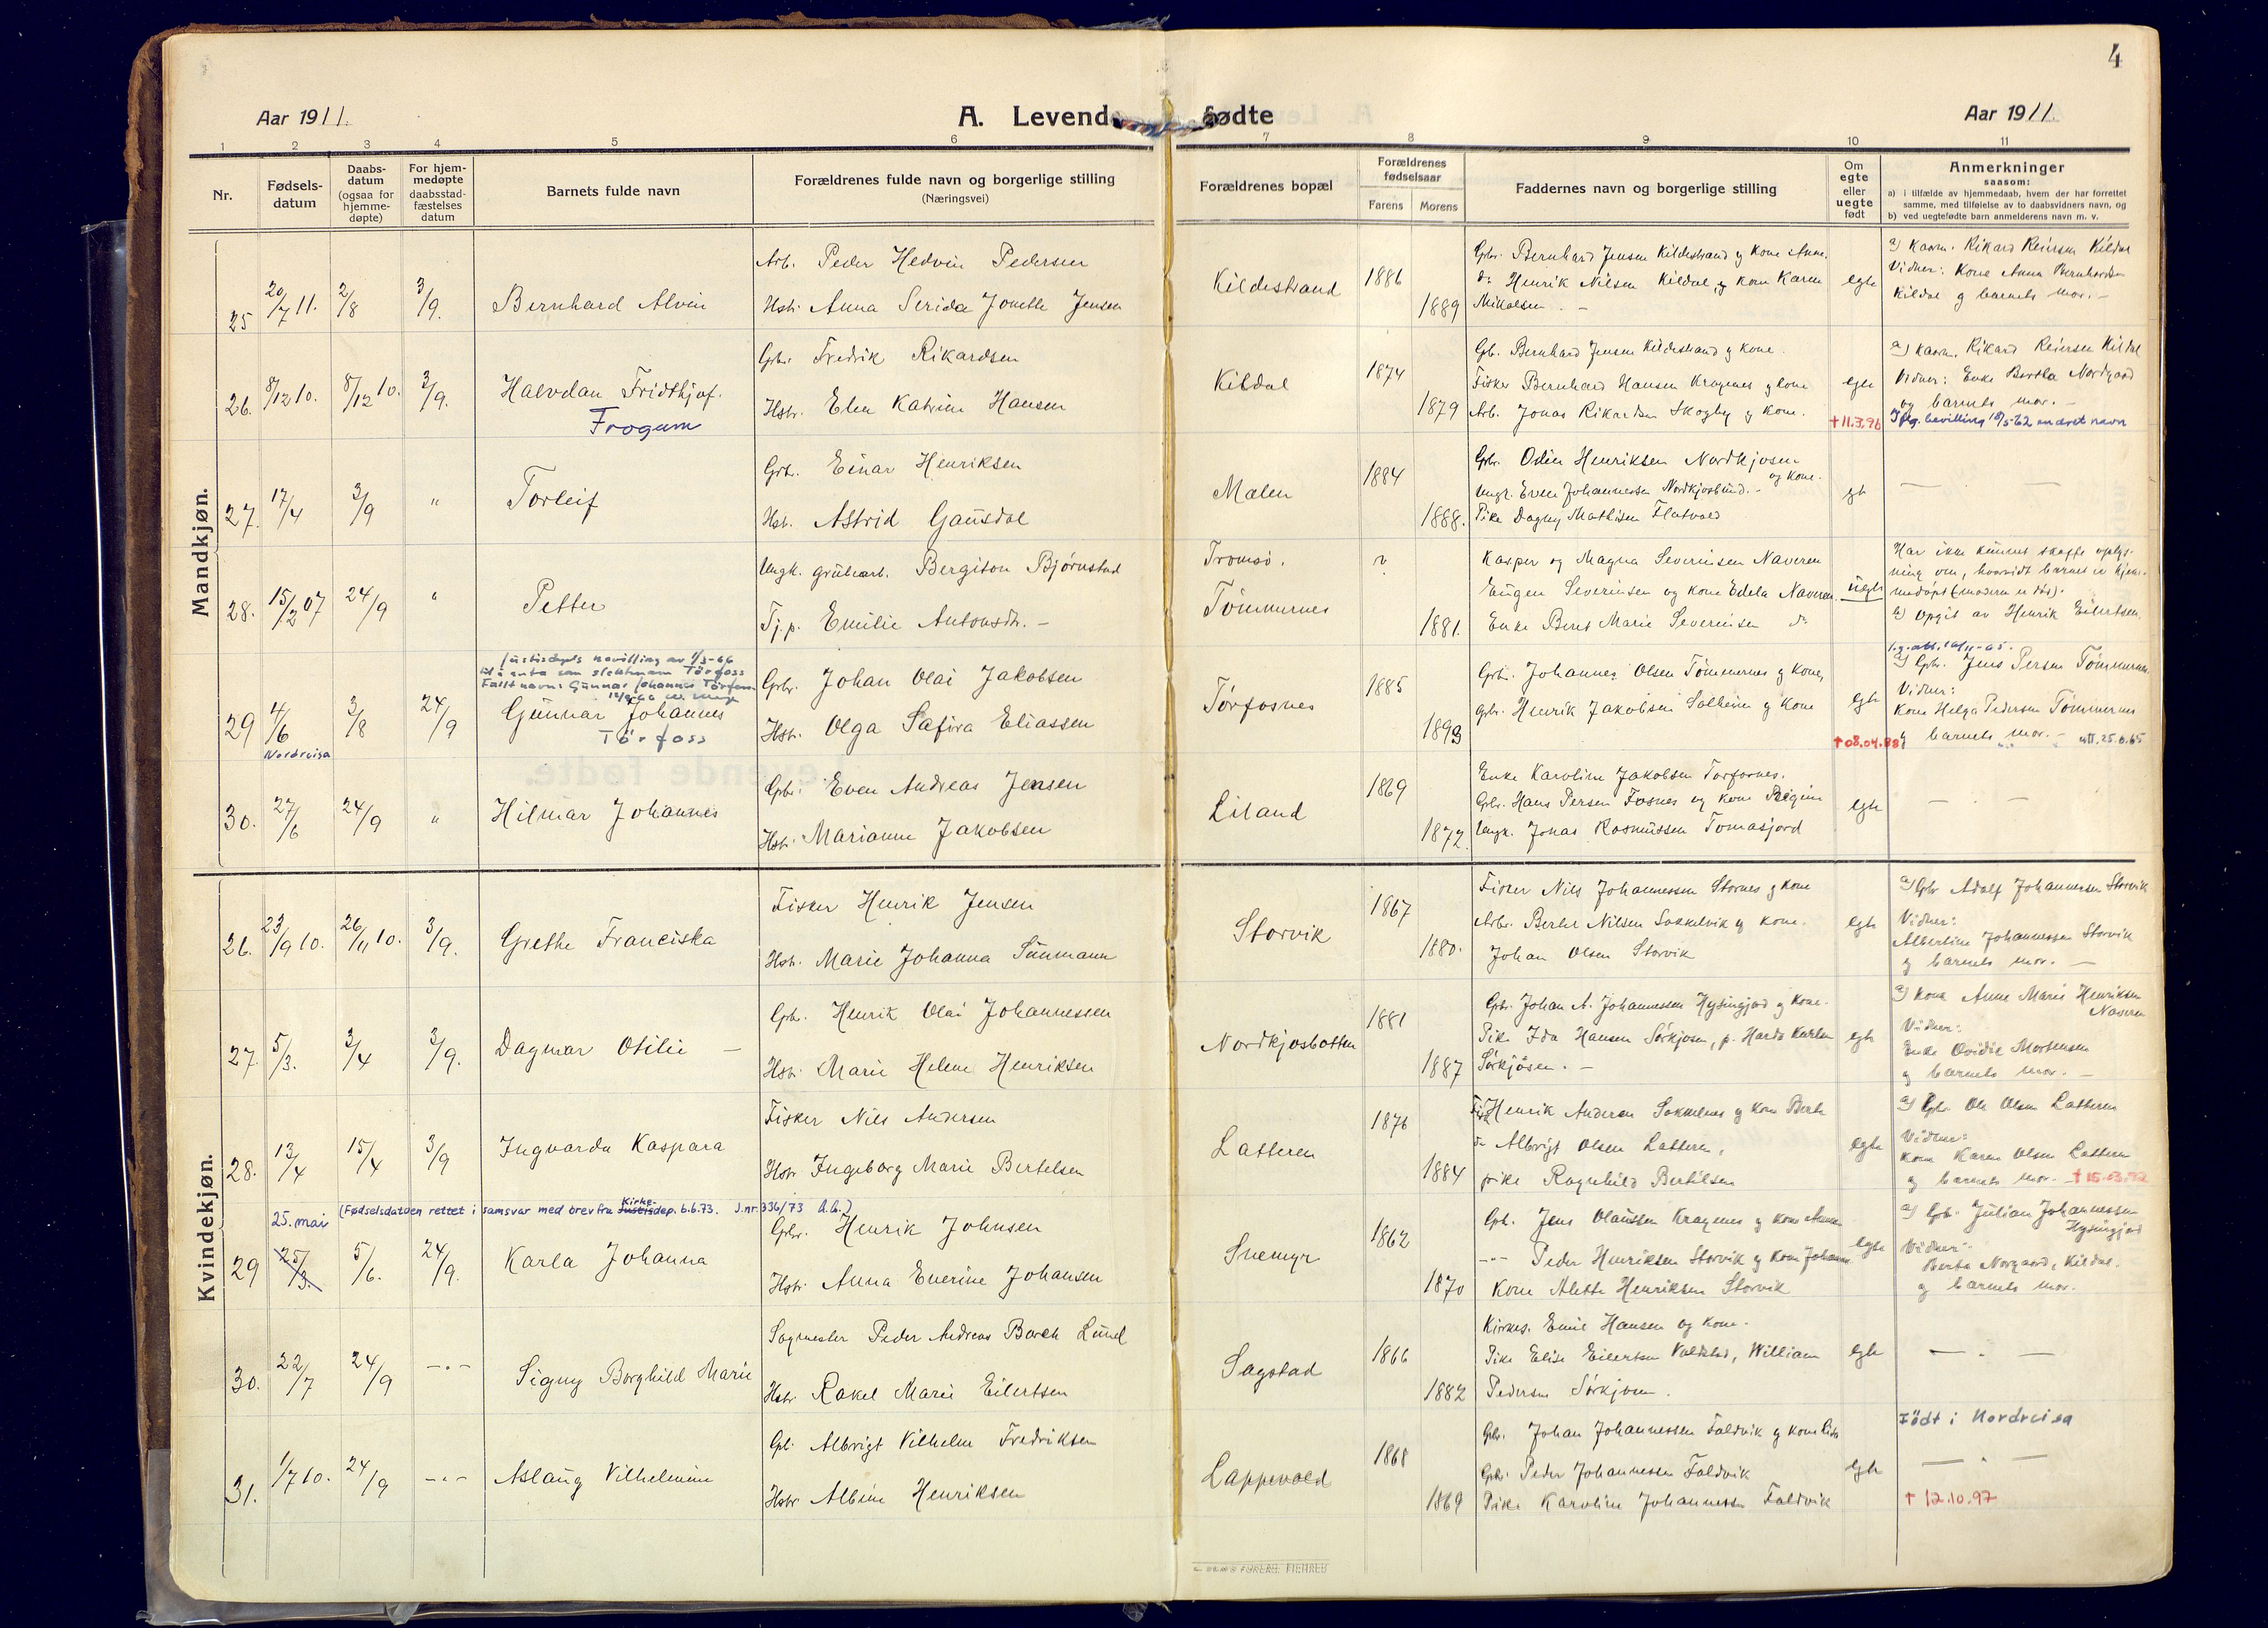 4
Aar 1911.
A. Levende fødte
Aar 1911.
1 2 3 4 5 6 7 8 9 10 11
Nr.
Fødsels-
datum
Daabs-
datum
(ogsaa for
hjemme-
døpte)
For hjem-
medøpte
daabsstad-
fæstelses
datum
Barnets fulde navn
Forældrenes fulde navn og borgerlige stilling
(Næringsvei)
Forældrenes bopæl
Forældrenes
fødselsaar
Farens Morens
Faddernes navn og borgerlige stilling
Om
egte
eller
uegte
født
Anmerkninger
saasom:
a) i tilfælde av hjemmedaab, hvem der har forrettet
samme, med tilføielse av to daabsvidners navn, og
b) ved uegtefødte barn anmelderens navn m. v.
Mandkjøn.
25 20/7 11. 2/8 3/9. Bernhard Alvin
Arb. Peder Hedvin Pedersen
Hstr. Anna Serida Jonette Jensen
Kildestrand 1886
1889
Gbr. Bernhard Jensen Kildestrand og kone Anne.
do Henrik Nilsen Kildal, og kone Karen
Mikalsen. -
egte
a) Kaarm. Rikard Reiersen Kildal
Vidner: Kone Anna Bernhardsen
Kildal og barnets mor. -
26. 8/12 10. 8/12 10. 3/9. Halvdan Fridthjof.
Frogum
Gbr. Fredrik Rikardsen
Hstr. Elen Katrine Hansen
Kildal 1874
1879
Gb. Bernhard Jensen Kildestrand og kone.
Fisker Bernhard Hansen Kragenes og kone
Arb. Jonas Rikardsen Skogby og kone.
egte
† 11.3.96
a) Kaarm. Rikard Reiersen Kildal
Vidner: Enke Bertha Nordgaard
og barnets mor. -
Ifg. bevilling 18/5-62 endret navn
27. 17/4 3/9 " Torleif
Grb. Einar Henriksen
Hst. Astrid Gausdal
Malen 1884
1888.
Gbr. Odin Henriksen Nordkjosen
og kone.
Ungk. Even Johannessen Nordkjosbund. -
Pike Dagny Mathisen Flatvold
egte
28. 15/2 07 24/9 " Petter
Ungk. grubearb. Bergiton Bjørnstad
Tj.p. Emilie Antonsdr. -
Tromsø. ?
Tømmernes
1881.
Kasper og Magna Severinsen Naveren
Eugen Severinsen og kone Edela Naveren.
Enke Beret Marie Severinsen do
uegte
Har ikke kunnet skaffe oplys-
ning om, hvorvidt barnet er hjem-
medøpt (moderen er død).
b) Opgit av Henrik Eilertsen.
Justisdepts bevilling av 1/3-66
til å anta som slektsnavn Törfoss
Fullt navn: Gunnar Johannes Törfoss
29 4/6 3/8 24/9 Gunnar Johannes
Törfoss
Nordreisa
Gbr. Johan Olai Jakobsen
Hst. Olga Safira Eliassen
Tørfosnes 1885
1893
Gbr. Johannes Olsen Tømmernes og kone,
Gbr. Henrik Jakobsen Solheim og kone
egte
† 08.04.88
a) Gbr. Jens Persen Tømmernes.
Vidner:
Kone Helga Pedersen Tømmernes
og barnets mor. - att. 25.6.65
30. 27/6 24/9 " Hilmar Johannes
Gbr. Even Andreas Jensen
Hst. Marianne Jakobsen
Liland 1869
1872.
Enke Karoline Jakobsen Torfosnes.
Gbr. Hans Persen Fosnes og kone Regine
Ungk. Jonas Rasmussen Tomasjord
egte
Kvindekjøn.
26. 23/9 10. 26/11 10. 3/9. Grethe Franciska
Fisker Henrik Jensen
Hst. Marie Johanna Sunmann
Storvik 1867
1880.
Fisker Nils Johannessen Stornes og kone
Arbr. Bertel Nilsen Sokkelvik og kone.
Johan Olsen Storvik
egte
a) Gbr Adolf Johannessen Storvik
Vidner:
Albertine Johannessen Storvik
og barnets mor. -
27. 5/3. 3/4 3/9. Dagmar Otilie -
Gbr. Henrik Olai Johannessen
Hst. Marie Helene Henriksen
Nordkjosbotten 1881
1887
Gbr. Johan A. Johannessen Hysingjord og kone.
Pike Ida Hansen Sørkjosen, p. Harda Karlsen
Sørkjosen. -
egte
a) Kone Anne Marie Henriksen
Naveren
Vidner:
Enke Ovidie Mortensen
og barnets mor. -
28. 13/4 15/4 3/9 Ingvarda Kaspara
Fisker Nils Andersen
Hstr. Ingeborg Marie Bertelsen
Latteren 1876
1884
Fisk. Henrik Andersen Sokkelnes og kone Berte
do Albrigt Olsen Latteren,
pike Ragnhild Bertelsen
egte
a) Gbr. Ole Olsen Latteren
Vidner:
Kone Karen Olsen Latteren
og barnets mor. † 15.03.92
25. mai (Fødselsdatoen rettet i samsvar med brev fra Justisdep. Kirke- 6.6.73. J.nr. 336/73 A.G.)
29 25/3. 5/6. 24/9. Karla Johanna
Gbr. Henrik Johnsen
Hstr. Anna Enerine Johansen
Snemyr 1862
1870
Gbr. Jens Olaussen Kragenes og kone Anna
-"- Peder Henriksen Storvik og kone Johanne
Kone Alette Henriksen Storvik
egte
a) Gbr. Julian Johannessen
Hysingjord
Vidner:
Berta Norgaard, Kildal.
og barnets mor.
30. 22/7 24/9 -"- Signy Borghild Marie
Sagmester Peder Andreas Borch Lund
Hstr. Rakel Marie Eilertsen
Sagstad 1866
1882
Kirkes. Emil Hansen og kone.
Pike Elise Eilertsen Valdstad, William
Pedersen Sørkjosen.
egte
31. 1/7 10. 24/9 -"- Aslaug Vilhelmine
Gbr. Albrigt Vilhelm Fredriksen
Hstr Albine Henriksen
Lappevold 1868
1869
Gbr. Johan Johannessen Faldvik og kone Lise
Gbr. Peder Johannessen Faldvik
Pike Karoline Johannessen Faldvik
egte
Födt i Nordreisa
† 12.10.97